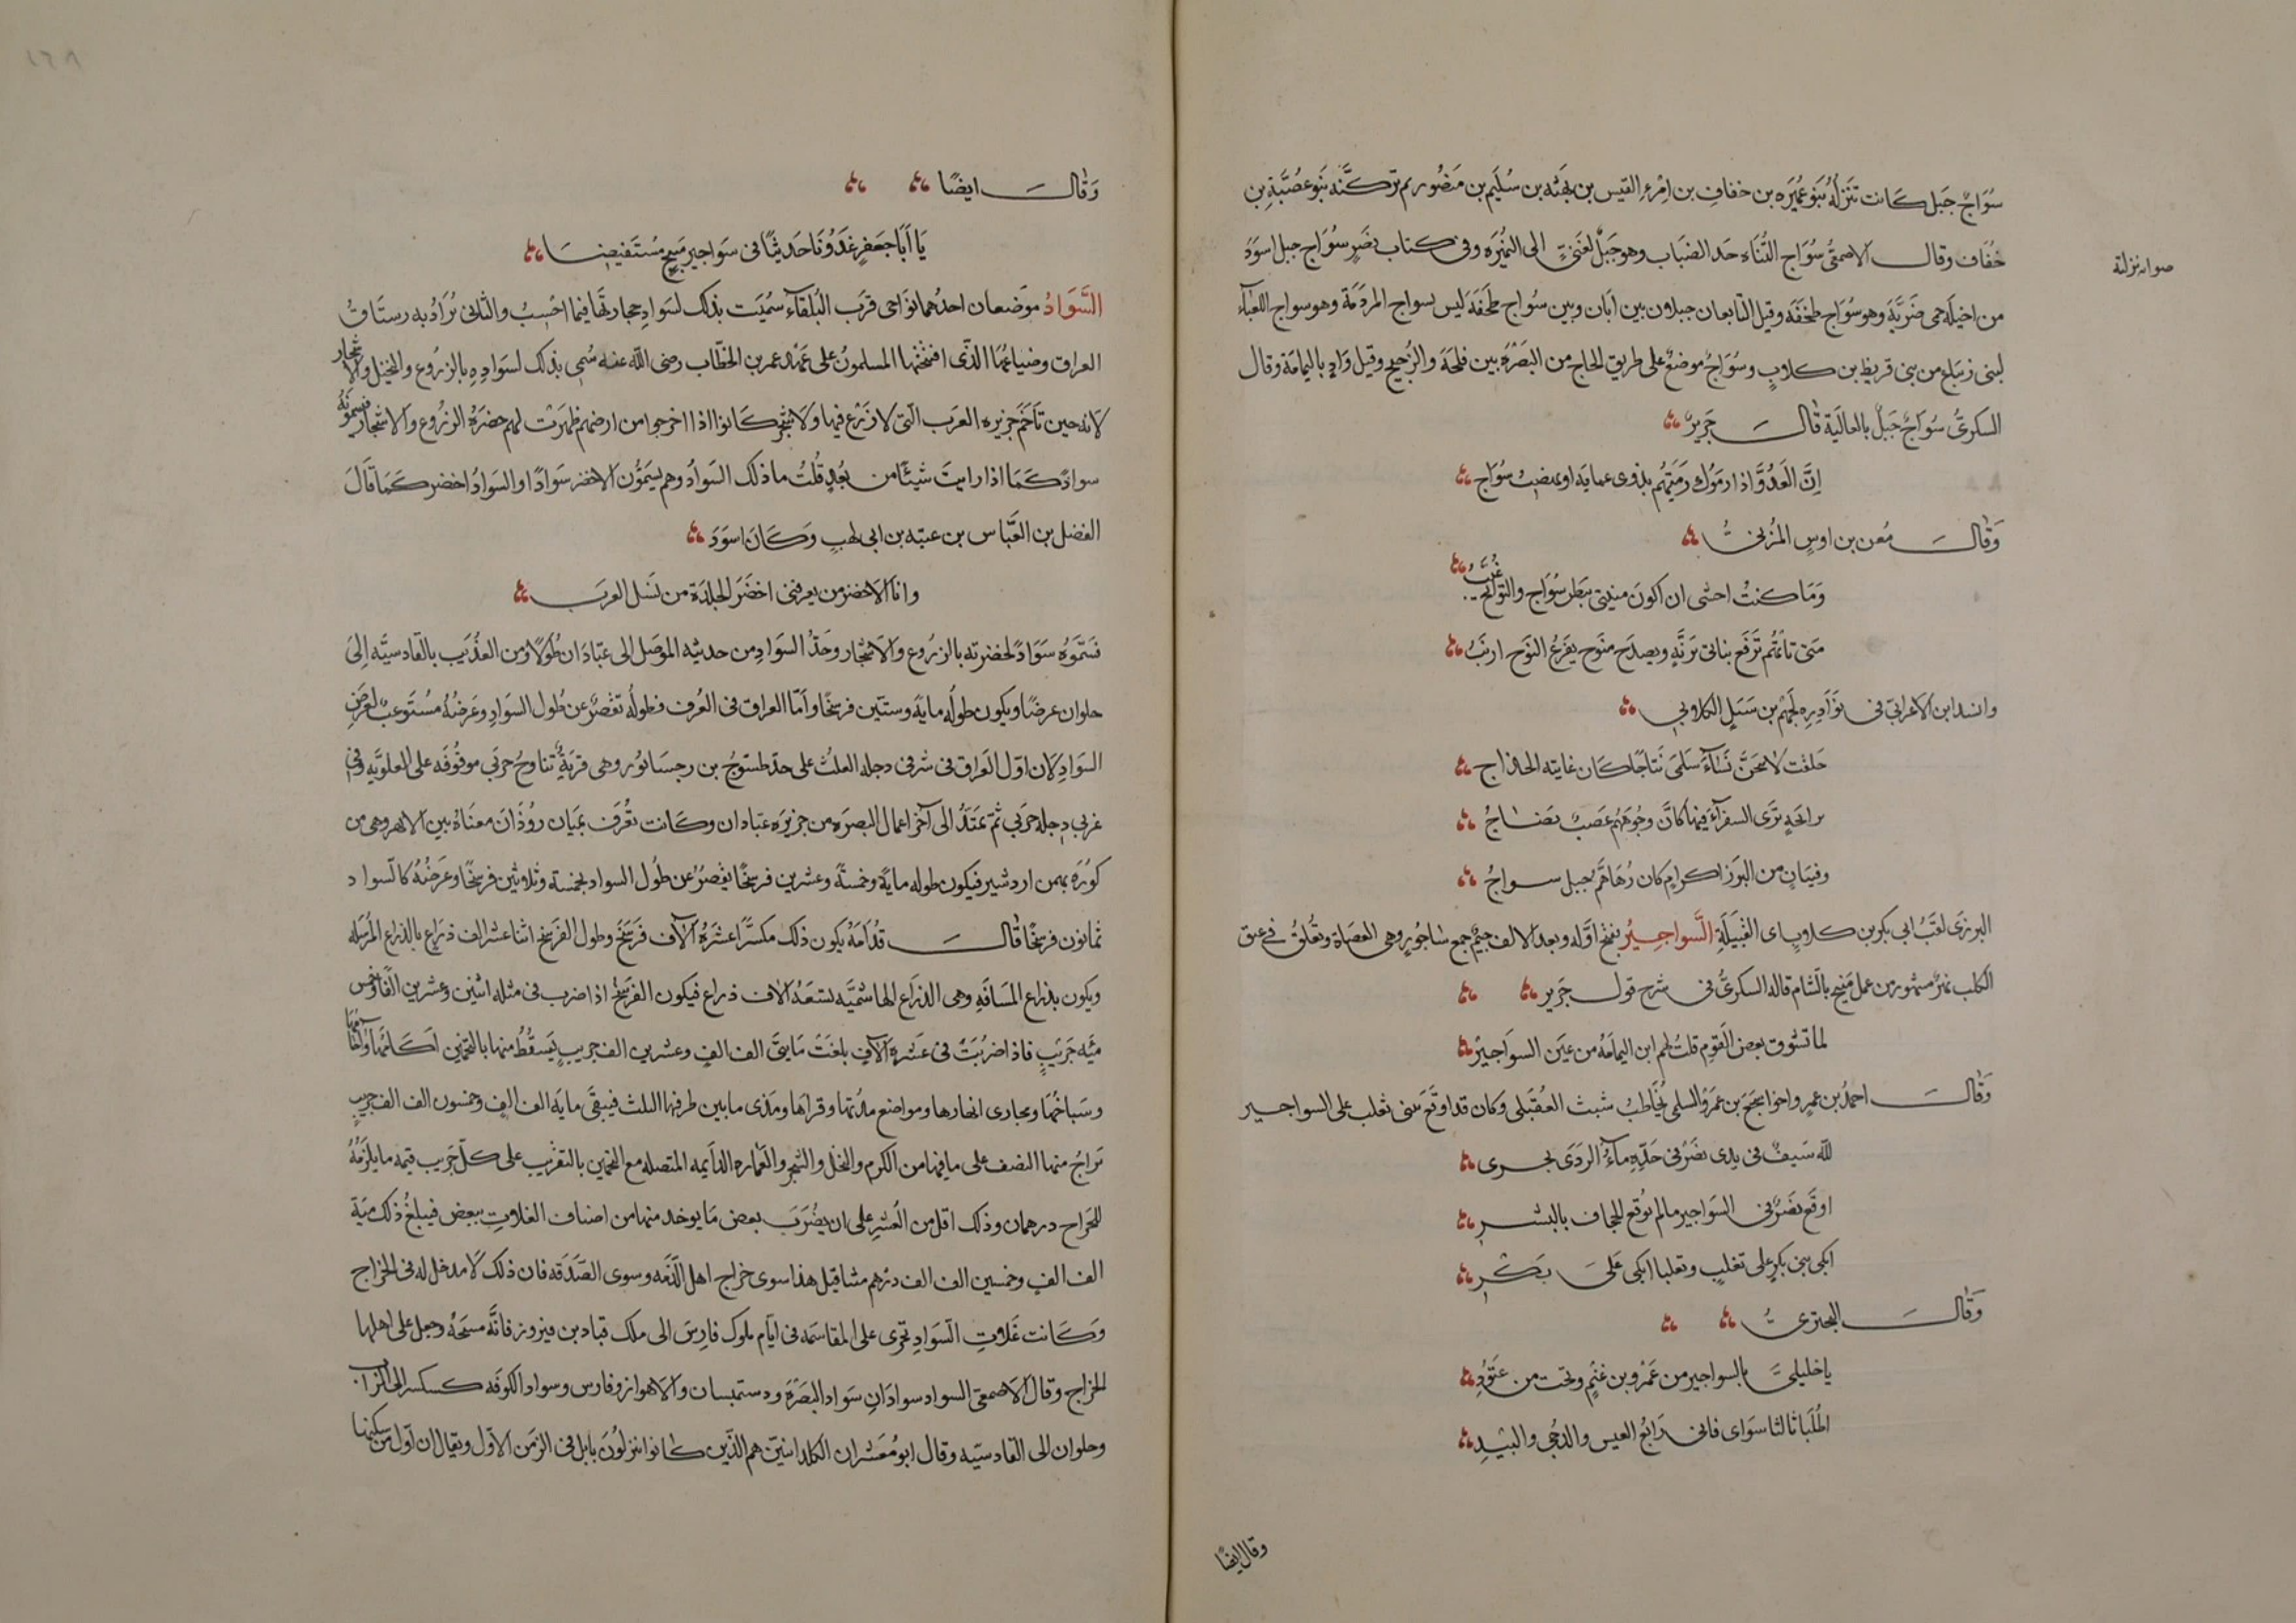 سُوَاجٌ جَبَل كَانت تَنزلُهُ بَنو عُمَيَرَه بن خفافِ بن اِمْرءِ القَيس بن بهَثه بن سُليَم بن مَنصُور ثم نزكَتَه بَنو عُصَيَّةِ بن
خُفَاف وقال الاصمعىُّ سُوَاج التُنَاء حَد الضبَاب وهو جَبَلٌ لغَنىٍّ الى النُميَرة وفى كتاب نصَرٍ سُوَاج جبل اسوَدُ
من اخيلَه حمى ضَريَّةَ وهو سُوَاج طخفَه وقيل النآيعان جبلان بين ابَان وبين سُواج طخَفَة ليس بسواج المردَمَة وهو سواج اللعبَآء
لبنى زنبَاع من بنى قريط بن كلابٍ وسُوَاجُ موضعٌ على طريق الحاج من البَصْرَة بين فلجَة والزُجيج وقيل وَادٍ باليمامَة وقال
السكرىُّ سُوَاجٌ جَبَلٌ بالعاليَة قَالَ جَريرٌ
اِنَّ العَدُوَّ اذا رمَوك رَمَيتهُم بذرى عمايَه او بهضب سُوَاج
صوابه نزلته
وَقَالَ مَعن بن اوسٍ المُزنىُّ
وَمَا كنتُ اخشى ان اكونَ منيتى ببَطن سُوَاج والنَوائح غُيَّبُ
متى تاتهُم تَرفَع بناتى برَنَّةٍ ويصدَح منَوح يفزعُ النَوح ارنَبُ
وانشد ابن الاعرابى فى نوَادِره لجَهم بن سَبَلٍ الكلابى
حَلفت لانتجَنَّ نسَآءَ سَلمَى نتَاجًا كان غايته الخداج
برايحَةٍ ترَى السفرآء فيها كانَّ وجُوهَهُم عَصَب نضَاجُ
وفتيَانٍ من البَزَرى كرامٍ كان زُهَاهَم جبل سواجُ
البزرَى لقبٌ ابى بكر بن كلابٍ اى القَبيَلَةِ السَّواجيرُ بفتح اوَّله وبعد الالف جيم جمع ساجُورٍ وهى العَصَاة وتعُلقُ فى عنق
الكلب نهرٌ مشهُور من عمل مَنبج بالشام قاله السكرىُّ فى شرح قول جَرير
لما تشوق بعض القَوم قلتُ لهم ابن اليمامَهُ من عيَن السوَاجيرْ
وَقَالَ احمدُ بن عمرٍو اخوا بجَحَ بن عمَرُو السلمى يُخَاطبُ شبث العُقَيلى وكان قد اوقَعَ ببنى ثعلب على السواجير
لله سَيفٌ فى يدى نصَرٍ فى حَدِّهِ مآءُ الردَى يجرى
اوقَع نصَرٌ فى السَواجير مالم يوُقع الجحاف بالبشرِ
ابكى بنى بكرٍ على تغلبٍ وتعلبا ابكى عَلىَ بَكْرِ
وَقَالَ البحترىُّ
يا خليلىَّ بالسواجير من عَمَرو بن غنَمٍ وبحتر من عَتوُدِ
اطُلَبا ثالثا سَواى فانى رَابعُ العيس والدجُى والبيدِ
وقال ايضًا
وَقَالَ ايضًا
يَا اَبَا جَعفرٍ غَدَوُنَا حَديثًا فى سَواجير مَنبجٍ مسُتَفيضَا
السَّوَادُ موَضعان احدُهما نوَاحى قرَب البُلقآء سُميَت بذلك لسَوادِ حجارتهَا فيما احَسبُ والثانى يُرَادُ به رستَاقُ
العراق وضياعُهَا الذى افتتَحَهَا المسلمونُ على عَهْدِ عمر بن الخطّاب رضى الله عنه سُمى بذلك لسَوادِهِ بالزرُوع والنخيل والاشجار
لانه حين تآخَمَ جَزيره العَرَب التى لا زَرْع فيها ولا شجَر كَانوا اذا اخرجوا من ارضهم ظهَرَت لهم خضرَةُ الزرُوع والاشجار فيسمونَهُ
سوادًا كَمَا اذا رايتَ شيئًا من بعُدٍ قُلتُ ما ذلك السَوادُ وهم يسَمَوُّن الاخضر سَوادًا والسَوادُ اخضر كَمَا قَالَ
الفضل بن العَبَّاس بن عتبه بن ابى لهبٍ وَكَانَ اسوَدَ
وانا الاخضر من يعرفنى اخضَرَ الجلدَة من نَسَل العَرَب
فسَمَّوهُ سَوَادً لخضرته بالزرُوع والاشجار وحَدُّ السَوادِ من حديثه الموَصل الى عبَّادَان طوُلاً ومن العذُيَب بالقادسيَّه اِلىَ
حلوان عرضًا ويكون طولُه مايَةً وستيّن فرسخًا واَمّا العراق فى العُرف فطولُه تقصُرُ عن طُول السَوادِ وعَرضُهُ مسُتَوعبٌ لعَرضِ
السَوادِ لان اوّل العَراق فى شرقى دجله العلثُ على حدّ طستوجُ بن رجسَابوُر وهى قريَةٌ تناوحُ حربى موقوُفه على العلويَّه وفى
غربى دجله حَربَى ثمّ تمتَدُّ الى آخر اعمال البصرَه من جزيرَه عبَّادان وكَانت تعُرَف بميَان روُذَان معنَاهُ بين الانهر وهى من
كورَة بهمن اردشير فيكون طوله مايَةً وخمسَةً وعشرين فرسخًا يقصُرُ عن طُول السواد بخمسة وثلاثين فرسخًا وعَرضُهُ كالسواد
ثمانون فرسخًا قَالَ قُدَامَهُ يكون ذلك مكسَّرًا عشَرَهُ آلاف فَرسَخ وطول الفَرسَخ اثنا عشر الف ذرَاعٍ بالذراع المُرسَله
ويكون بذراع المسَافَه وهى الذرَاع الهاشميَّه تسعَهُ الاف ذراع فيكون الفَرسَخ اذا ضرب فى مثله اثنين وعشرين الفًا وخمس
ميَّه جَريَبٍ فاذا ضرُبَتَ فى عَشرَة آلافٍ بلغَتَ مَايتىَّ الف الفٍ وعشرين الف جريبٍ يَسقُطُ منها بالتخمين اكَامُهَا وآجَامُهَا
وسَباخُهَا ومجارى انهارها ومواضع مدُنها وقراهَا ومَدَى ما بين طرفها الثلث فيبقَى مايَه الف الفٍ وخمسون الف الف جريبٍ
يرَاحُ منها النصَف على ما فيها من الكَرم والنخل والشجر والعَماره الدآيمه المتصله مع التخمين بالتقرَيب على كلّ جَريب قيمه ما يلزَمُهُ
للخَراج درهمان وذلك اقل من العُشِر على ان يضُرَبَ بعض مَا يوخد منها من اصناف الغلاتِ ببعض فيبلغُ ذلك ميَة
الف الفٍ وخمسين الف الف درَهم مثاقيل هذا سوى خراج اهل الذَمَه وسوى الصَّدَقه فان ذلك لاَ مدخل له فى الخراج
وَكَانت غَلاتِ السَوادِ تجرى على المقاسَمه فى ايّام ملوك فارِسَ الى ملك قبَاد بن فيروز فانَّه مسَحَهُ وجعل على اهلها
الخراج وقال الاصمعى السواد سوادَانِ سَواد البَصَرَة ودستميسان والاهواز وفارس وسواد الكوفَه كسكر الى الزاب
وحلوان الى القادسيّه وقال ابو مُعَشر ان الكلدانيين هم الذّين كانوا ينزلوُنَ بابل فى الزمَن الاوّل ويقال ان اوّل من سكنها